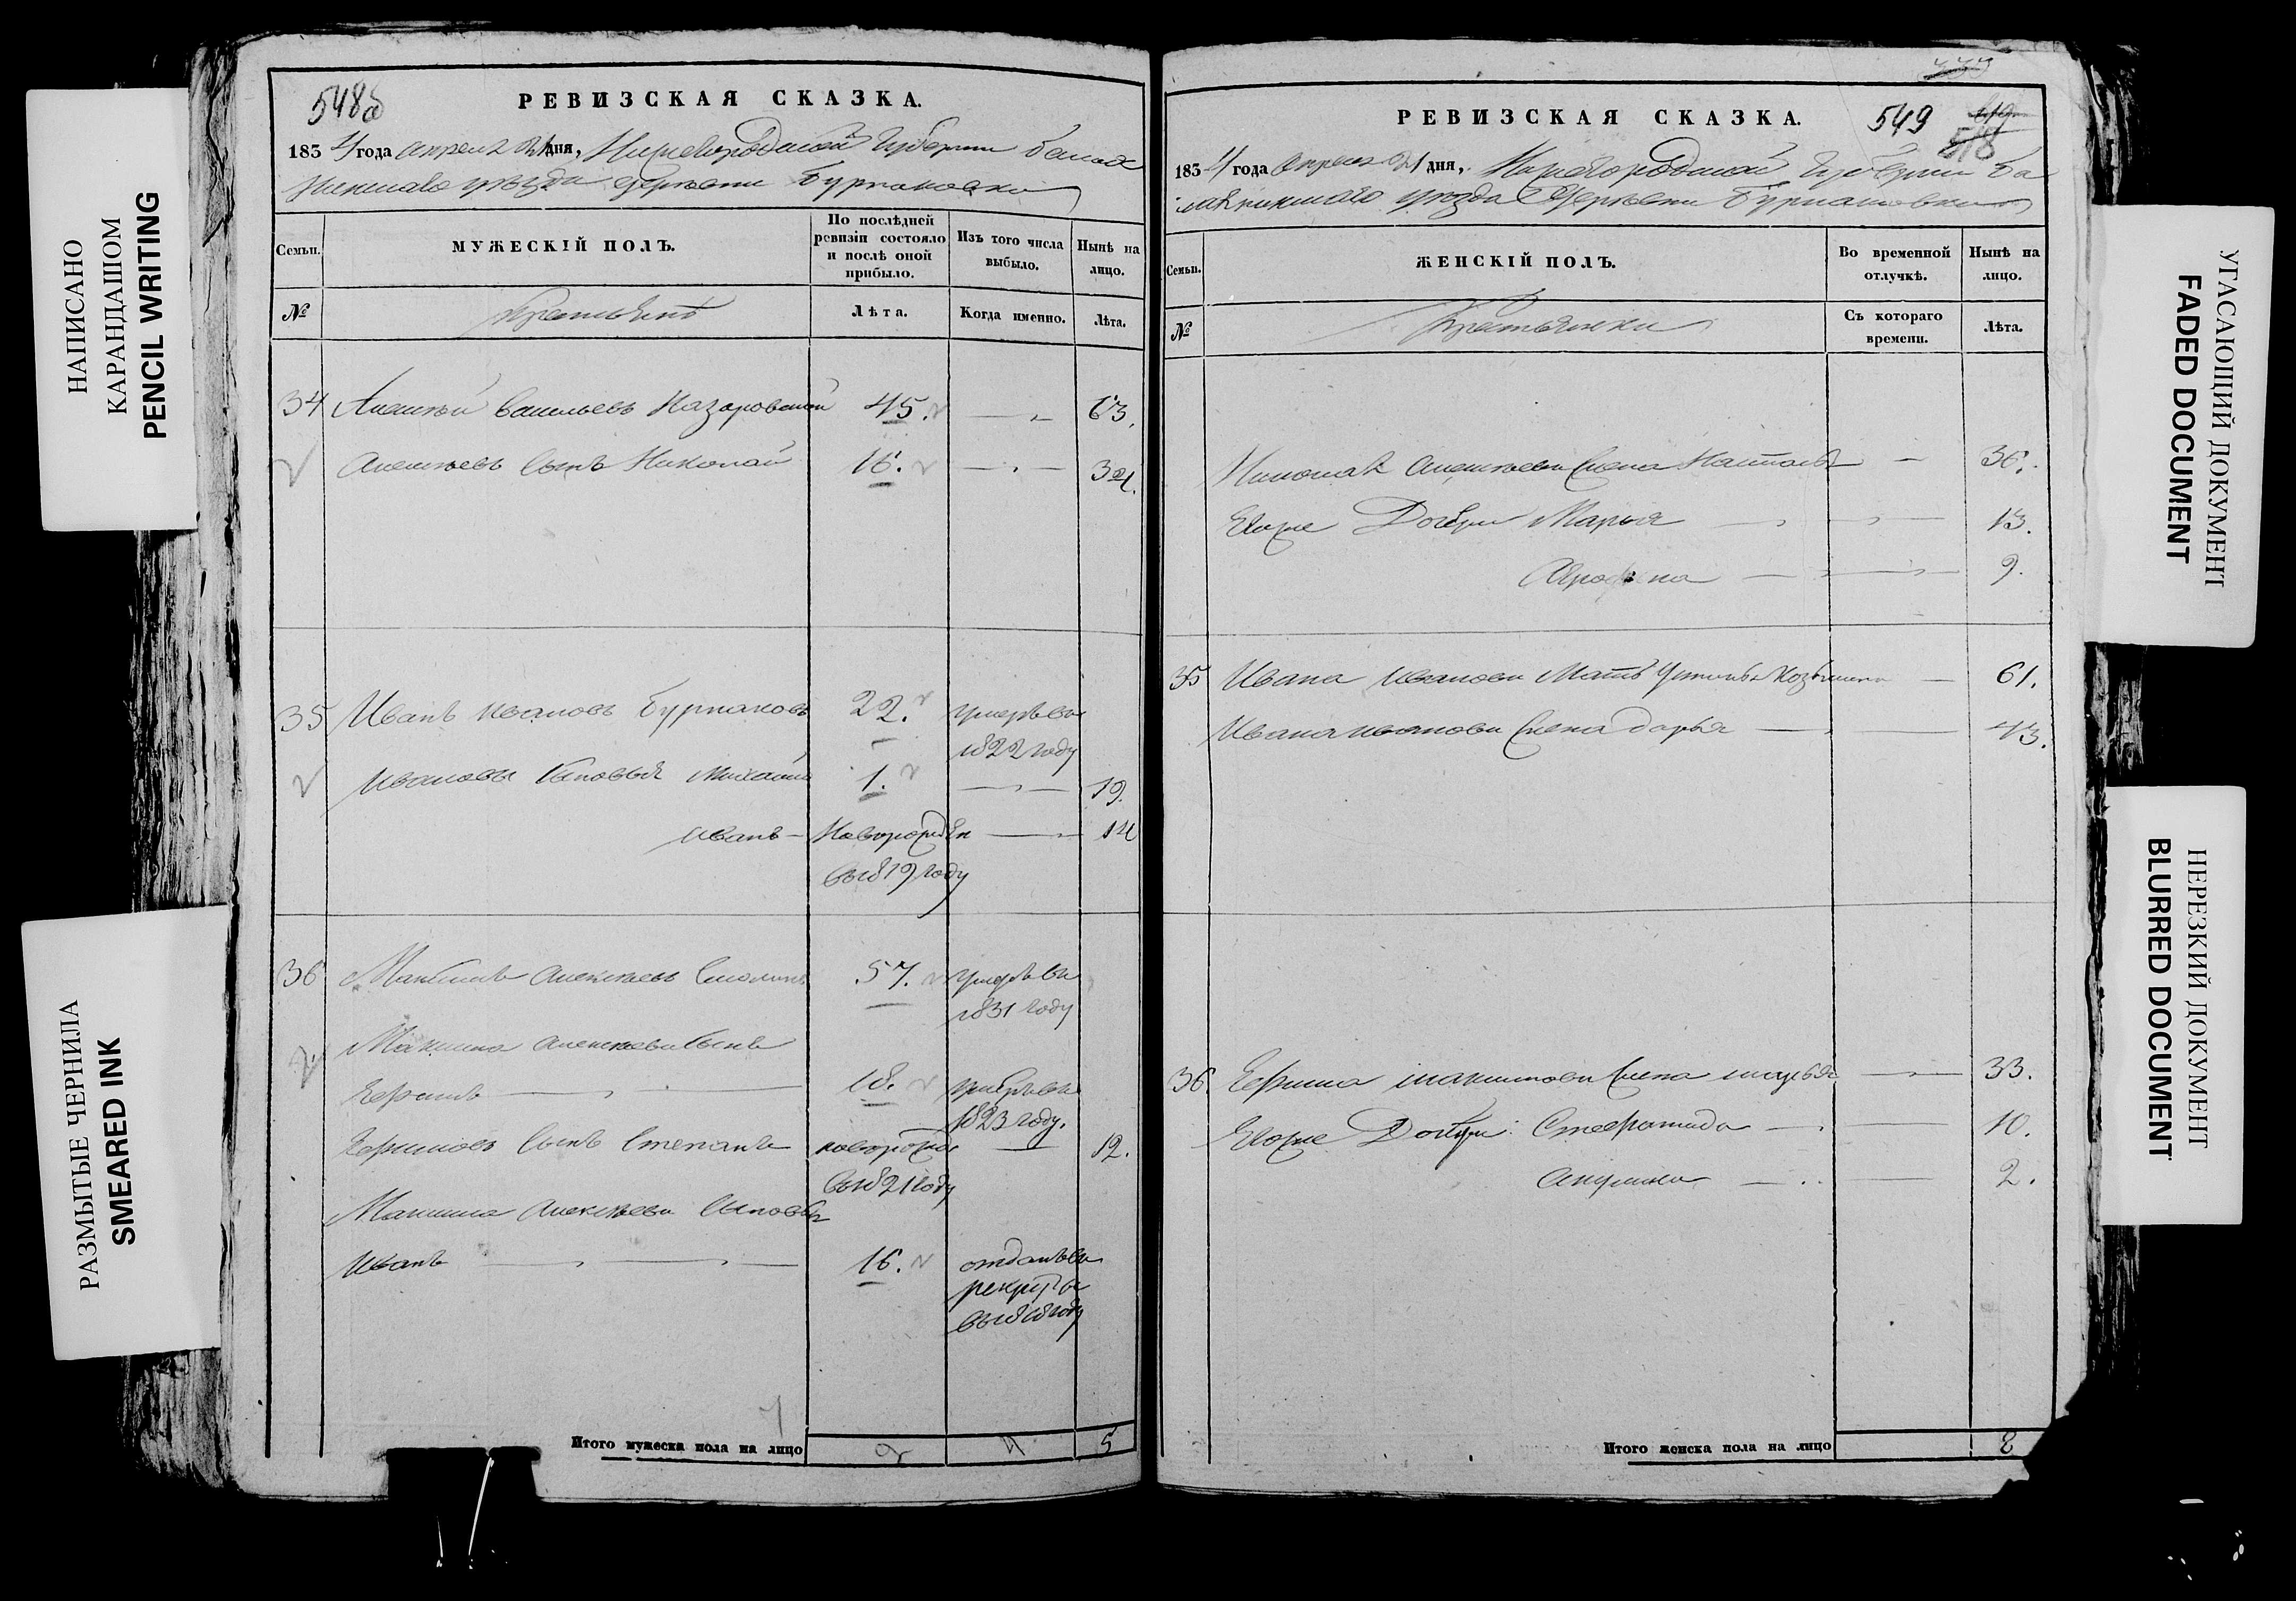 НАПИСАНО
КАРАНДАШОМ
PENCIL WRITING
РАЗМЫТЫЕ ЧЕРНИЛА
SMEARED INK
548б
РЕВИЗСКАЯ СКАЗКА.
1834 года апреля 21 дня, Нижегородской Губернии Балах
нинскаго уезда деревни Бурнаковки
Семьи.
МУЖЕСКІЙ ПОЛЪ.
По послѣдней
ревизіи состояло
и послѣ оной
прибыло.
Изъ того числа
выбыло.
Нынѣ на
лицо.
№
Крестьянъ
Лѣта.
Когда именно.
Лѣта.
34 Алексѣй Васильевъ Назаровской 45. 63.
Алексѣевъ сынъ Николай 16. 34.
35 Иванъ Ивановъ Бурнаковъ 22. умеръ въ
1822 году
Ивановы сыновья Михайла 1. 19.
Иванъ - Новорожден 14
въ 1819 году
36 Максимъ Алексѣевъ 57. умеръ въ
1831 году
Максима Алексѣева сынъ
Ефимъ 18. умеръ въ
1823 году.
Ефимовъ сынъ Степанъ новорожден 12.
въ 1821 году
Максима Алексѣева сыновья
Иванъ 16. отданъ въ
рекруты
въ 1818 году
7
Итого мужеска пола на лицо 5
549
518
РЕВИЗСКАЯ СКАЗКА.
1834 года апреля 21 дня, Нижегородской Губернии Ба
лахнинскаго уезда Деревни Бурнаковки
Семьи.
ЖЕНСКІЙ ПОЛЪ.
Во временной
отлучкѣ.
Нынѣ на
лицо.
№
Крестьянки
Съ котораго
времени.
Лѣта.
Николая Алексѣева жена Наталья 36.
Ево же Дочери Марья 13.
Аграфена 9.
35 Ивана Иванова Мать Устинья Козьмина 61.
Ивана Иванова жена Дарья 43.
36. Ефима Максимова жена 33.
Ево же Дочери: Стефанида 10.
Акулина 2.
Итого женска пола на лицо 8
УГАСАЮЩИЙ ДОКУМЕНТ
FADED DOCUMENT
НЕРЕЗКИЙ ДОКУМЕНТ
BLURRED DOCUMENT